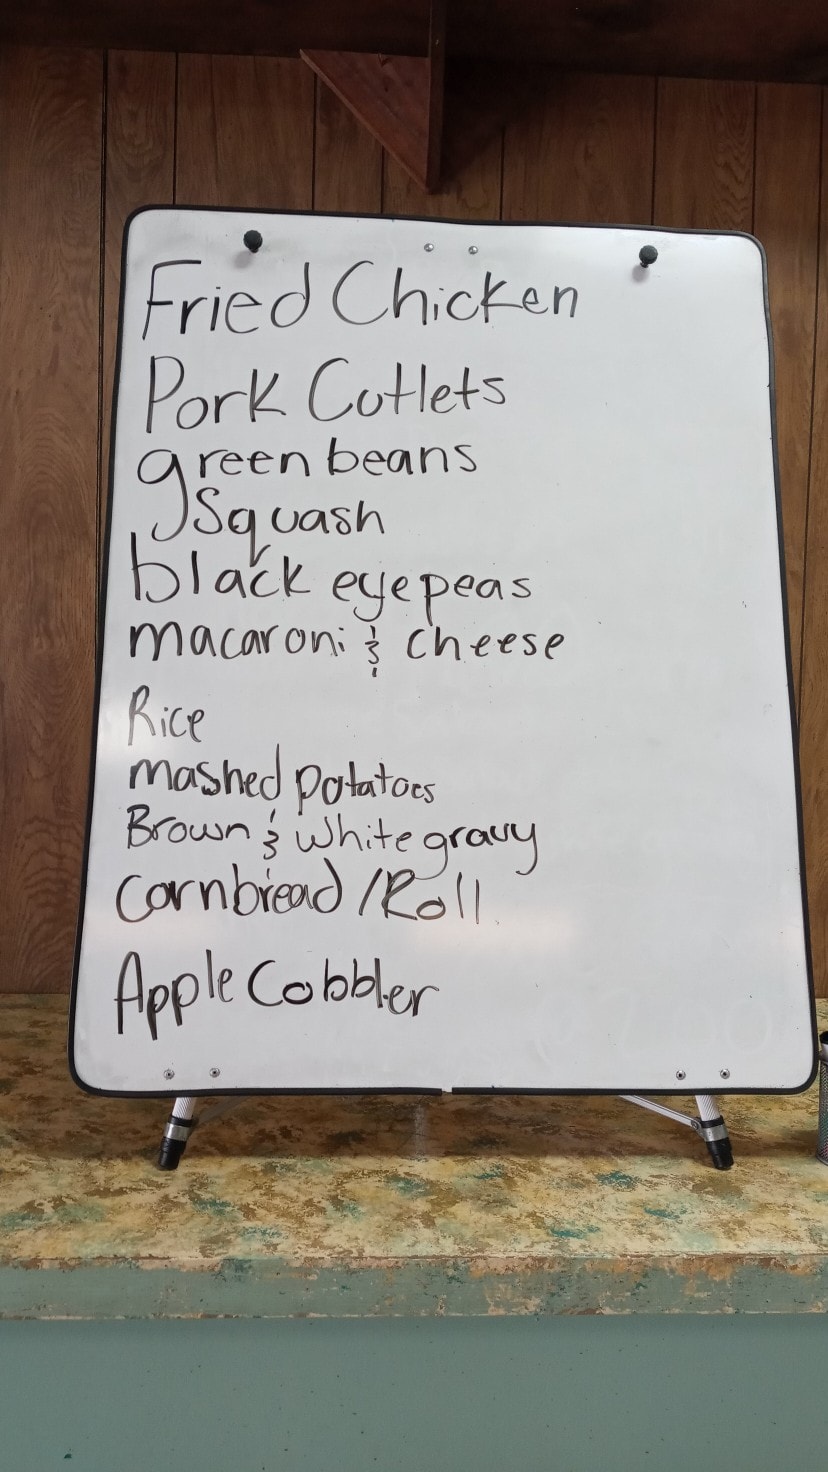 Fried Chicken
Pork Cutlets
green beans
Squash
black eye peas
macaroni & cheese
Rice
mashed potatoes
Brown & white gravy
Cornbread / Roll
Apple Cobbler